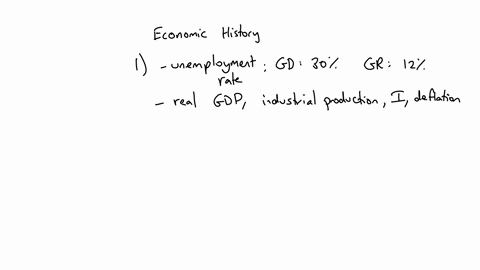 Economic History
1) - unemployment rate : GD: 30% GR: 12%
- real GDP, industrial production, I, deflation